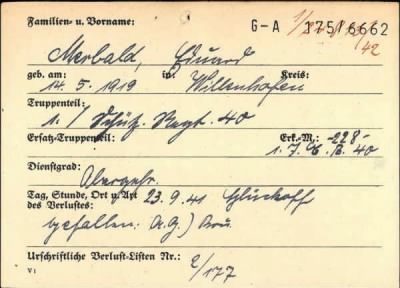 Familien- u. Vorname: G-A 175/6662
Merbald, Eduard 42
geb. am: in: Kreis:
14. 5. 1919 Willenhofen
Truppenteil:
1./ Schütz. Regt. 40
Ersatz-Truppenteil: Erk.-M.: -228-
1. J. E. B. 40
Dienstgrad:
Obergefr.
Tag, Stunde, Ort u. Art 23.9.41
des Verlustes:
gefallen: A.G.)
Urschriftliche Verlust-Listen Nr.: 2/177
V1